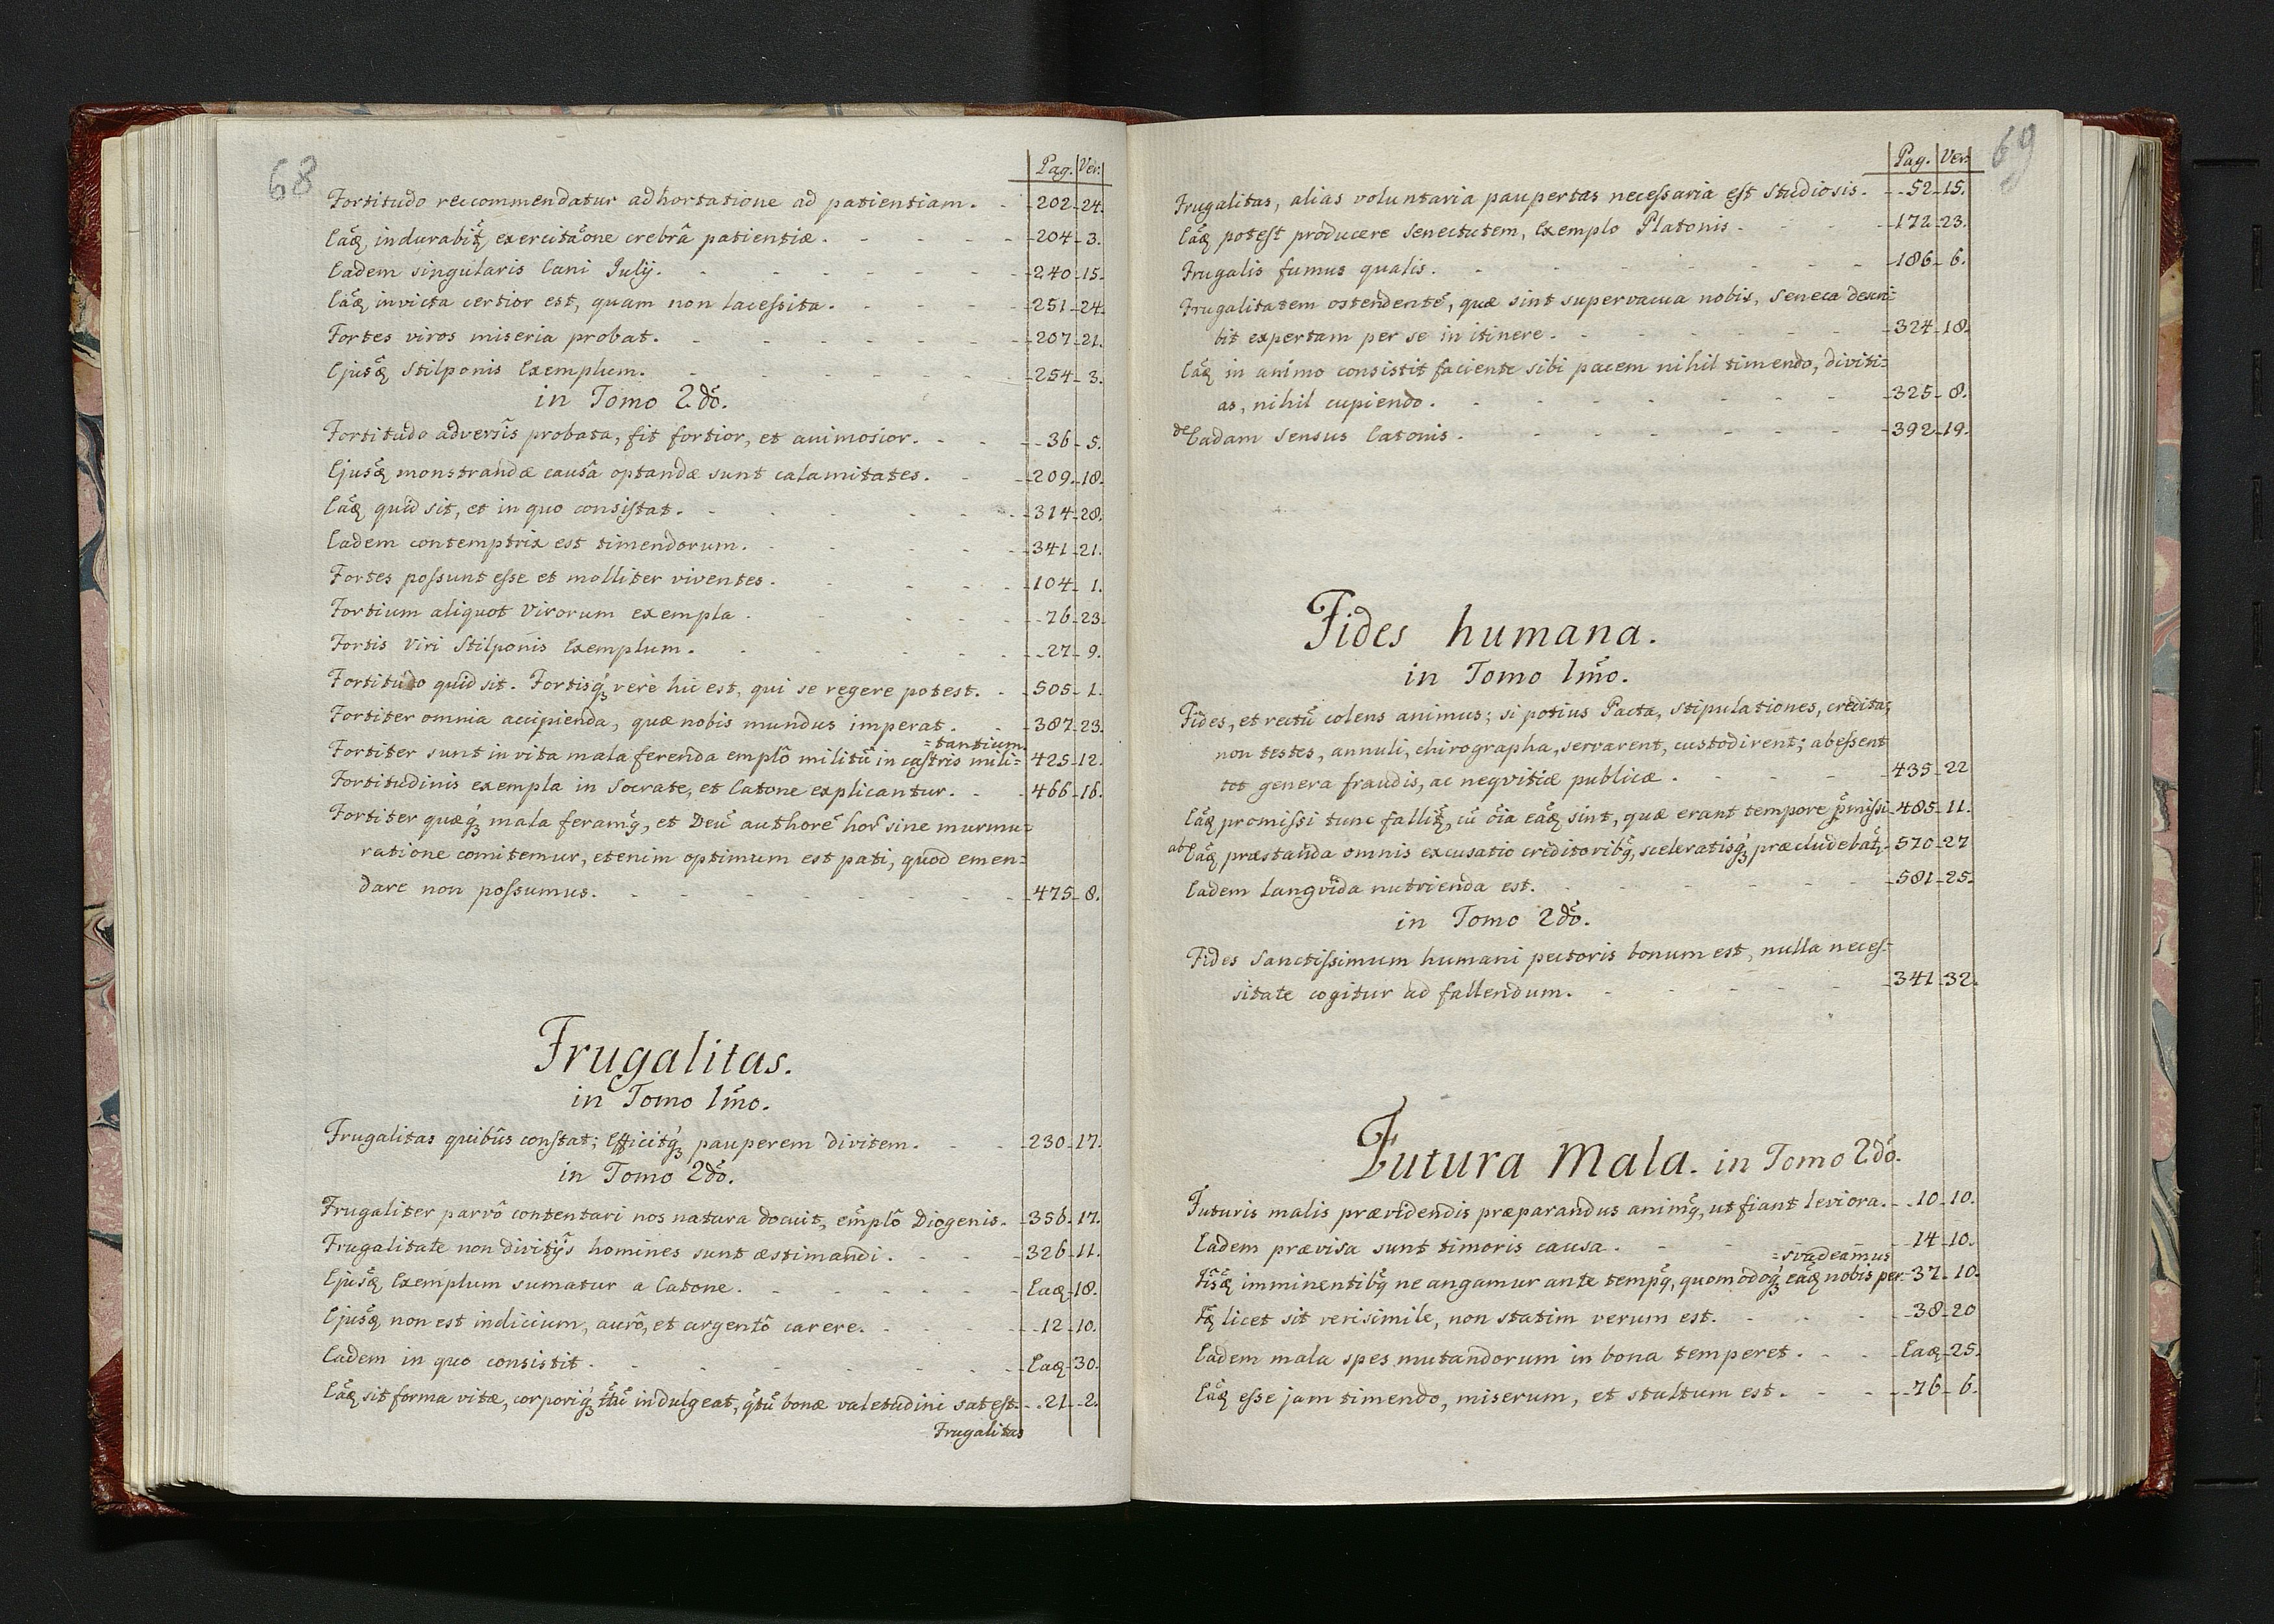 68
Pag. Ver.
Fortitudo reccommendatur adhortatione ad patientiam. 202 24.
Eâdẽ indurabit̃ exercitãone crebrâ patientiæ. 204 3.
Eadem singularis Cani Julij. 240 15.
invicta certior est, quam non lacessita. 251 24.
Fortes viros miseria probat. 207 21.
Stilponis Exemplum. 254 3.
in Tomo 2dõ.
Fortitudo adversîs probata, fit fortior, et animosior. 36 5.
monstrandæ causâ optandæ sunt calamitates. 209 18.
quid sit, et in quo consistat. 314 28.
Eadem contemptrix est timendorum. 341 21.
Fortes possunt esse et molliter viventes. 104 1.
Fortium aliquot Virorum exempla. 76 23.
Fortis Viri Stilponis Exemplum. 27 9.
Fortitudo quid sit. Fortisq́ verè hic est, qui se regere potest. 505 1.
Fortiter omnia accipienda, quæ nobis mundus imperat. 387 23.
=tantium.
Fortiter sunt in vita mala ferenda emplô militũ in castris mili= 425 12.
Fortitudinis exempla in Socrate, et Catone explicantur. 466 16.
Fortiter quæq́ mala feramq̃, et Deũ authorẽ hor̃ sine murmu=
ratione comitemur, etenim optimum est pati, quod emen=
dare non possumus. 475 8.
Frugalitas.
in Tomo 1mõ.
Frugalitas quibûs constat; Efficitq́ pauperem divitem. 230 17.
in Tomo 2dõ.
Frugaliter parvô contentari nos natura docuit, emplô Diogenis. 356 17.
Frugalitate non divitijs homines sunt æstimandi. 326 11.
Exemplum sumatur a Catone. 18.
non est indicium, aurô, et argentô carere. 12 10.
Eadem in quo consistit. 30.
sit forma vitæ, corporiq́ indulgeat, q̃tũ bonæ valetudini sat est. 21 2.
Frugalitas
69
Pag. Ver.
Frugalitas, alias voluntaria paupertas necessaria est Studiosis. 52 15.
potest producere Senectutem, Exemplo Platonis. 172 23.
Frugalis fumus qualis. 186 6.
Frugalitatem ostendentẽ, quæ sint supervacua nobis, Seneca descri=
bit expertam per se in itinere. 324 18.
in animo consistit faciente sibi pacem nihil timendo, diviti=
as, nihil cupiendo. 325 8.
de Eadam Sensus Catonis. 392 19.
Fides humana.
in Tomo 1mõ.
Fides, et rectũ colens animus; si potius Pacta, stipulationes, credita;
non testes, annuli, chirographa, servarent, custodirent; abessent
tot genera fraudis, ac neqvitiæ publicæ. 435 22
promissi tunc fallit̃, cũ õia sint, quæ erant tempore p̃missi 485 11.
ab præstanda omnis excusatio creditoribq̃, sceleratisq́ præcludebat̃. 570 27
Eadem langvida nutrienda est. 581 25.
in Tomo 2dõ.
Fides Sanctissimum humani pectoris bonum est, nulla neces=
sitate cogitur ad fallendum. 341 32.
Futura Mala. in Tomo 2dõ.
Futuris malis prævidendis præparandus animq̃, ut fiant leviora. 10 10.
Eadem prævisa sunt timoris causa. 14 10.
=svadeamus
imminentibq̃ ne angamur ante tempq̃, quomodoq́ nobis per 37 10.
licet sit verisimile, non statim verum est. 38 20
Eadem mala spes mutandorum in bona temperet. 25.
esse jam timendo, miserum, et stultum est. 76 6.